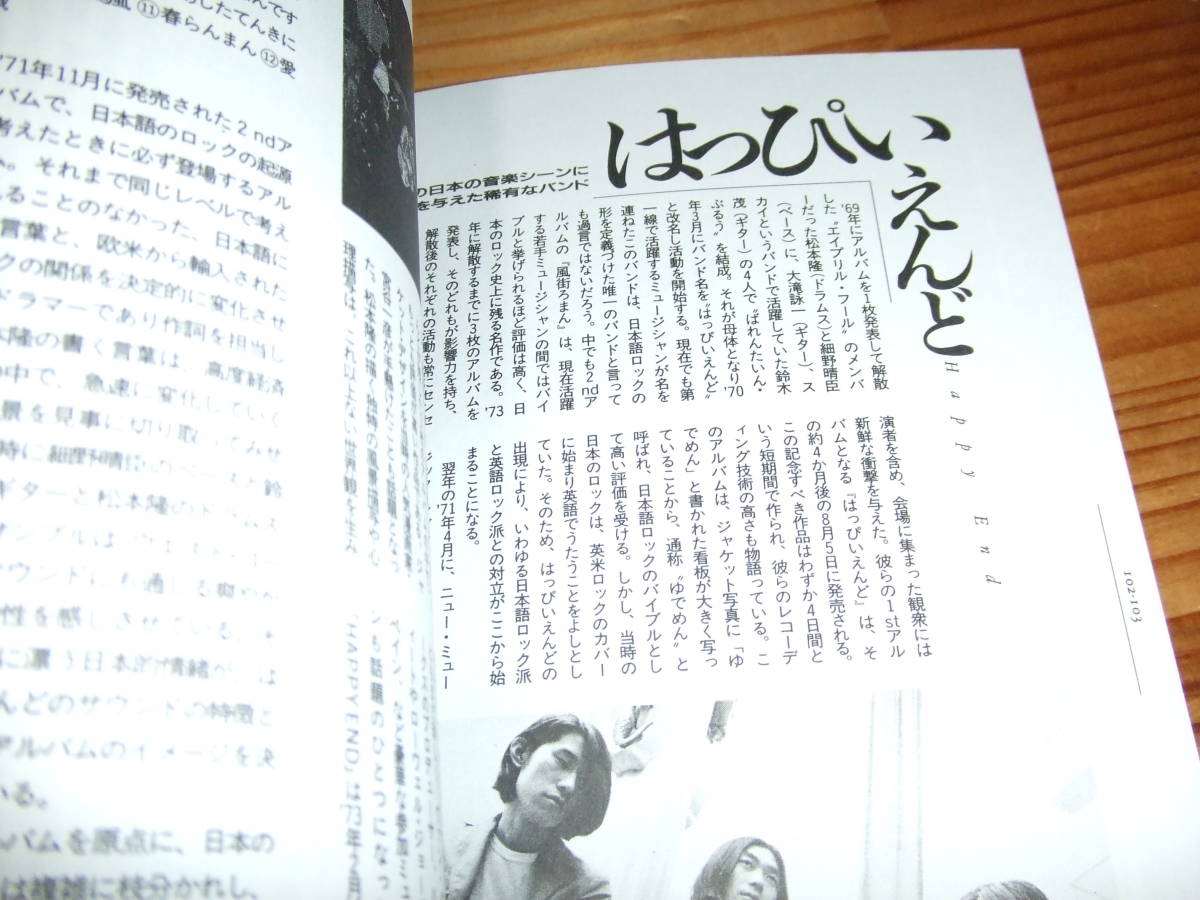 はっぴいえんど
Happy End
102-103
の日本の音楽シーンに
を与えた稀有なバンド
'69年にアルバムを1枚発表して解散
した〝エイプリル・フール〟のメンバ
ーだった松本隆(ドラムス)と細野晴臣
(ベース)に、大滝詠一(ギター)、ス
カイというバンドで活躍していた鈴木
茂(ギター)の4人で〝ばれんたいん・
ぶるう〟を結成。それが母体となり'70
年3月にバンド名を〝はっぴいえんど〟
と改名し活動を開始する。現在でも第
一線で活躍するミュージシャンが名を
連ねたこのバンドは、日本語ロックの
形を定義づけた唯一のバンドと言って
も過言ではないだろう。中でも2ndア
ルバムの『風街ろまん』は、現在活躍
する若手ミュージシャンの間ではバイ
ブルと挙げられるほど評価は高く、日
本のロック史上に残る名作である。'73
年に解散するまでに3枚のアルバムを
発表し、そのどれもが影響力を持ち、
解散後のそれぞれの活動も常にセンセ
演者を含め、会場に集まった観衆には
新鮮な衝撃を与えた。彼らの1stアル
バムとなる『はっぴいえんど』は、そ
の約4か月後の8月5日に発売される。
この記念すべき作品はわずか4日間と
いう短期間で作られ、彼らのレコーデ
ィング技術の高さも物語っている。こ
のアルバムは、ジャケット写真に「ゆ
でめん」と書かれた看板が大きく写っ
ていることから、通称〝ゆでめん〟と
呼ばれ、日本語ロックのバイブルとし
て高い評価を受ける。しかし、当時の
日本のロックは、英米ロックのカバー
に始まり英語でうたうことをよしとし
ていた。そのため、はっぴいえんどの
出現により、いわゆる日本語ロック派
と英語ロック派との対立がここから始
まることになる。
翌年の'71年4月に、ニュー・ミュー
んです
したてんきに
風 ⑪春らんまん⑫愛
'71年11月に発売された2ndア
バムで、日本語のロックの起源
考えたときに必ず登場するアル
。それまで同じレベルで考え
ることのなかった、日本語に
言葉と、欧米から輸入された
クの関係を決定的に変化させ
ドラマーであり作詞を担当し
本隆の書く言葉は、高度経済
の中で、急速に変化していく
景を見事に切り取ってみせ
時に細野晴臣のベースと鈴
ギターと松本隆のドラムス
性を感じさせている。
に漂う日本的情緒が、は
んどのサウンドの特徴と
アルバムのイメージを決
いる。
ルバムを原点に、日本の
は複雑に枝分かれし、
た。松本隆の描く独特の風景描写や心
理描写は、これ以上ない世界観を生み
ンも話題のひとつになっ
『HAPPY END』は'73年2月